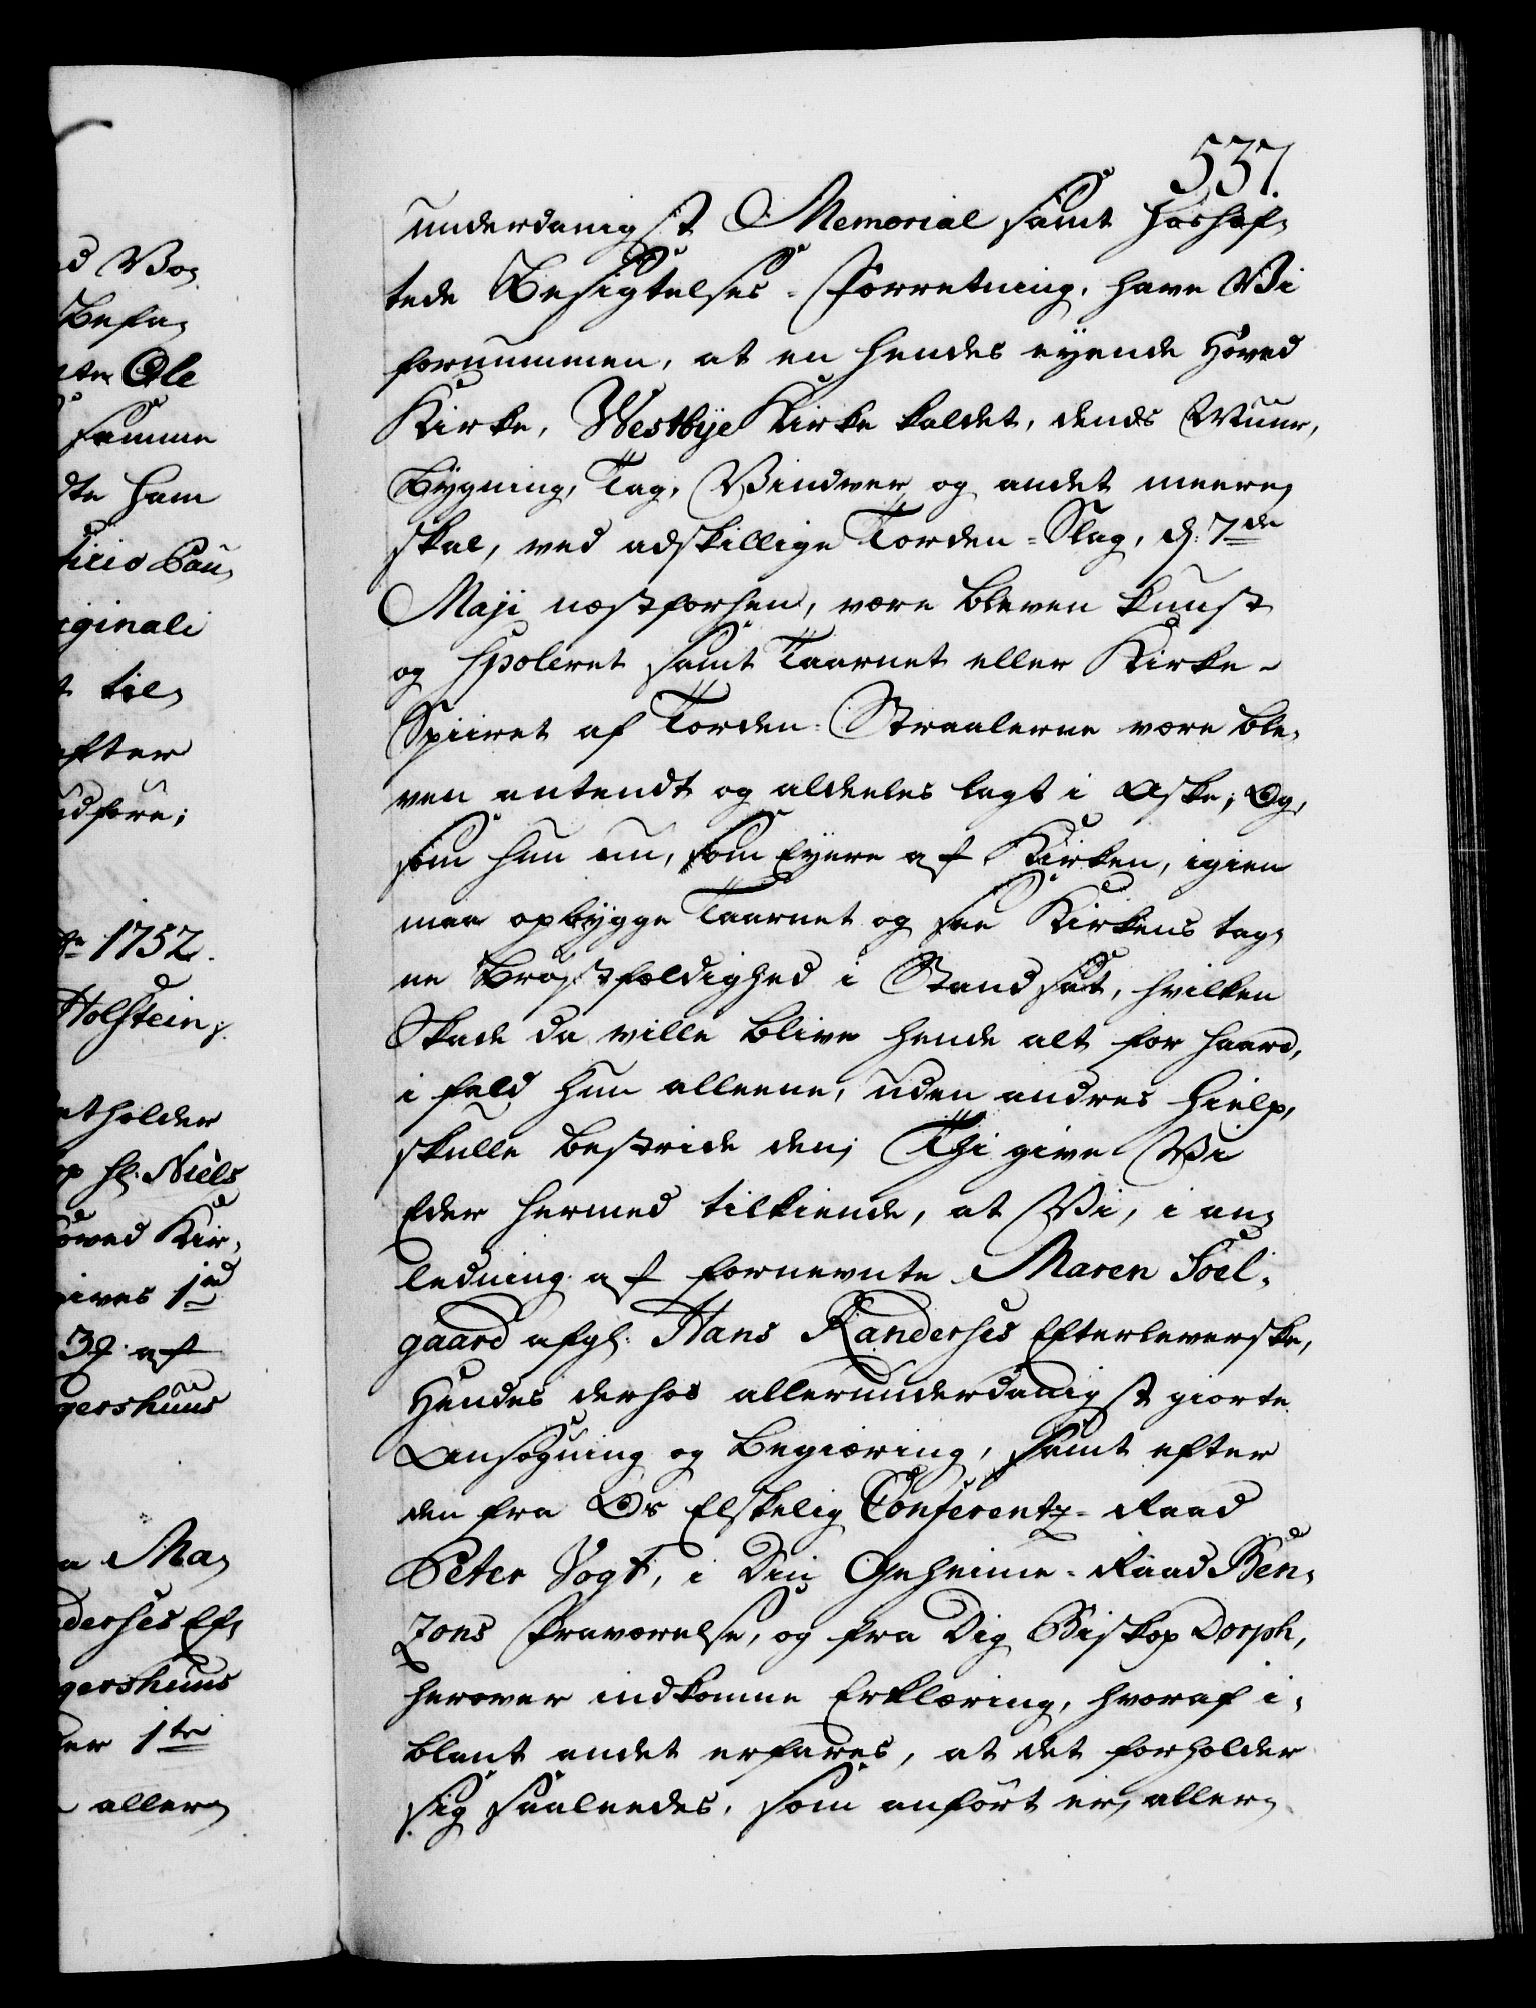 537.
underdanigst Memorial samt hoshef-
tede Besigtelses-Forretning, have Vi
fornummen, at en hendes eyende Hoved
Kirke, Westbye Kirke kaldet, dends Muur,
Bygning, Tag, Vinduer, og andet meere,
skal, ved adskillige Torden-Slag, d: 7de
Maji næstforhen, være bleven knust
og spoleret samt Taarnet eller Kirke-
Spiiret af Torden-Straalerne være ble-
ven antendt og aldeeles lagt i Aske; Og,
som hun nu, som Eyere af Kirken, igien
maa opbygge Taarnet og see Kirkens tag-
ne Brøstfældighed i Stand sat, hvilken
Skade da ville blive hende alt for haard,
i fald hun alleene, uden andres Hielp,
skulle bestride den; Thi give Vi
Eder hermed tilkiende, at Vi, i an-
ledning af fornevnte Maren Soel-
gaard afg: Hans Randershis Efterleverske,
Hendes derhos allerunderdanigst giorte
Ansøgning og Begiæring, samt efter
den fra Os Elskelig Conferentz-Raad
Peter Vogt, i Din Geheime-Raad Ben-
zons Fraværelse, og fra Dig Biskop Dorph,
herover indkomne Erklæring, hvoraf i-
blant andet erfares, at det forholder
sig saaleedes, som anført er, aller-
d Vo-
Befa-
Ole
samme
dte ham
ficio Pau-
iginali
t til-
efter
udføre;
1752.
Holstein;
atholder
p H: Niels
oved Kir-
gives 1ad
3 af
gershuus
a Ma-
dershis Ef-
gershuus
er 1te
aller-